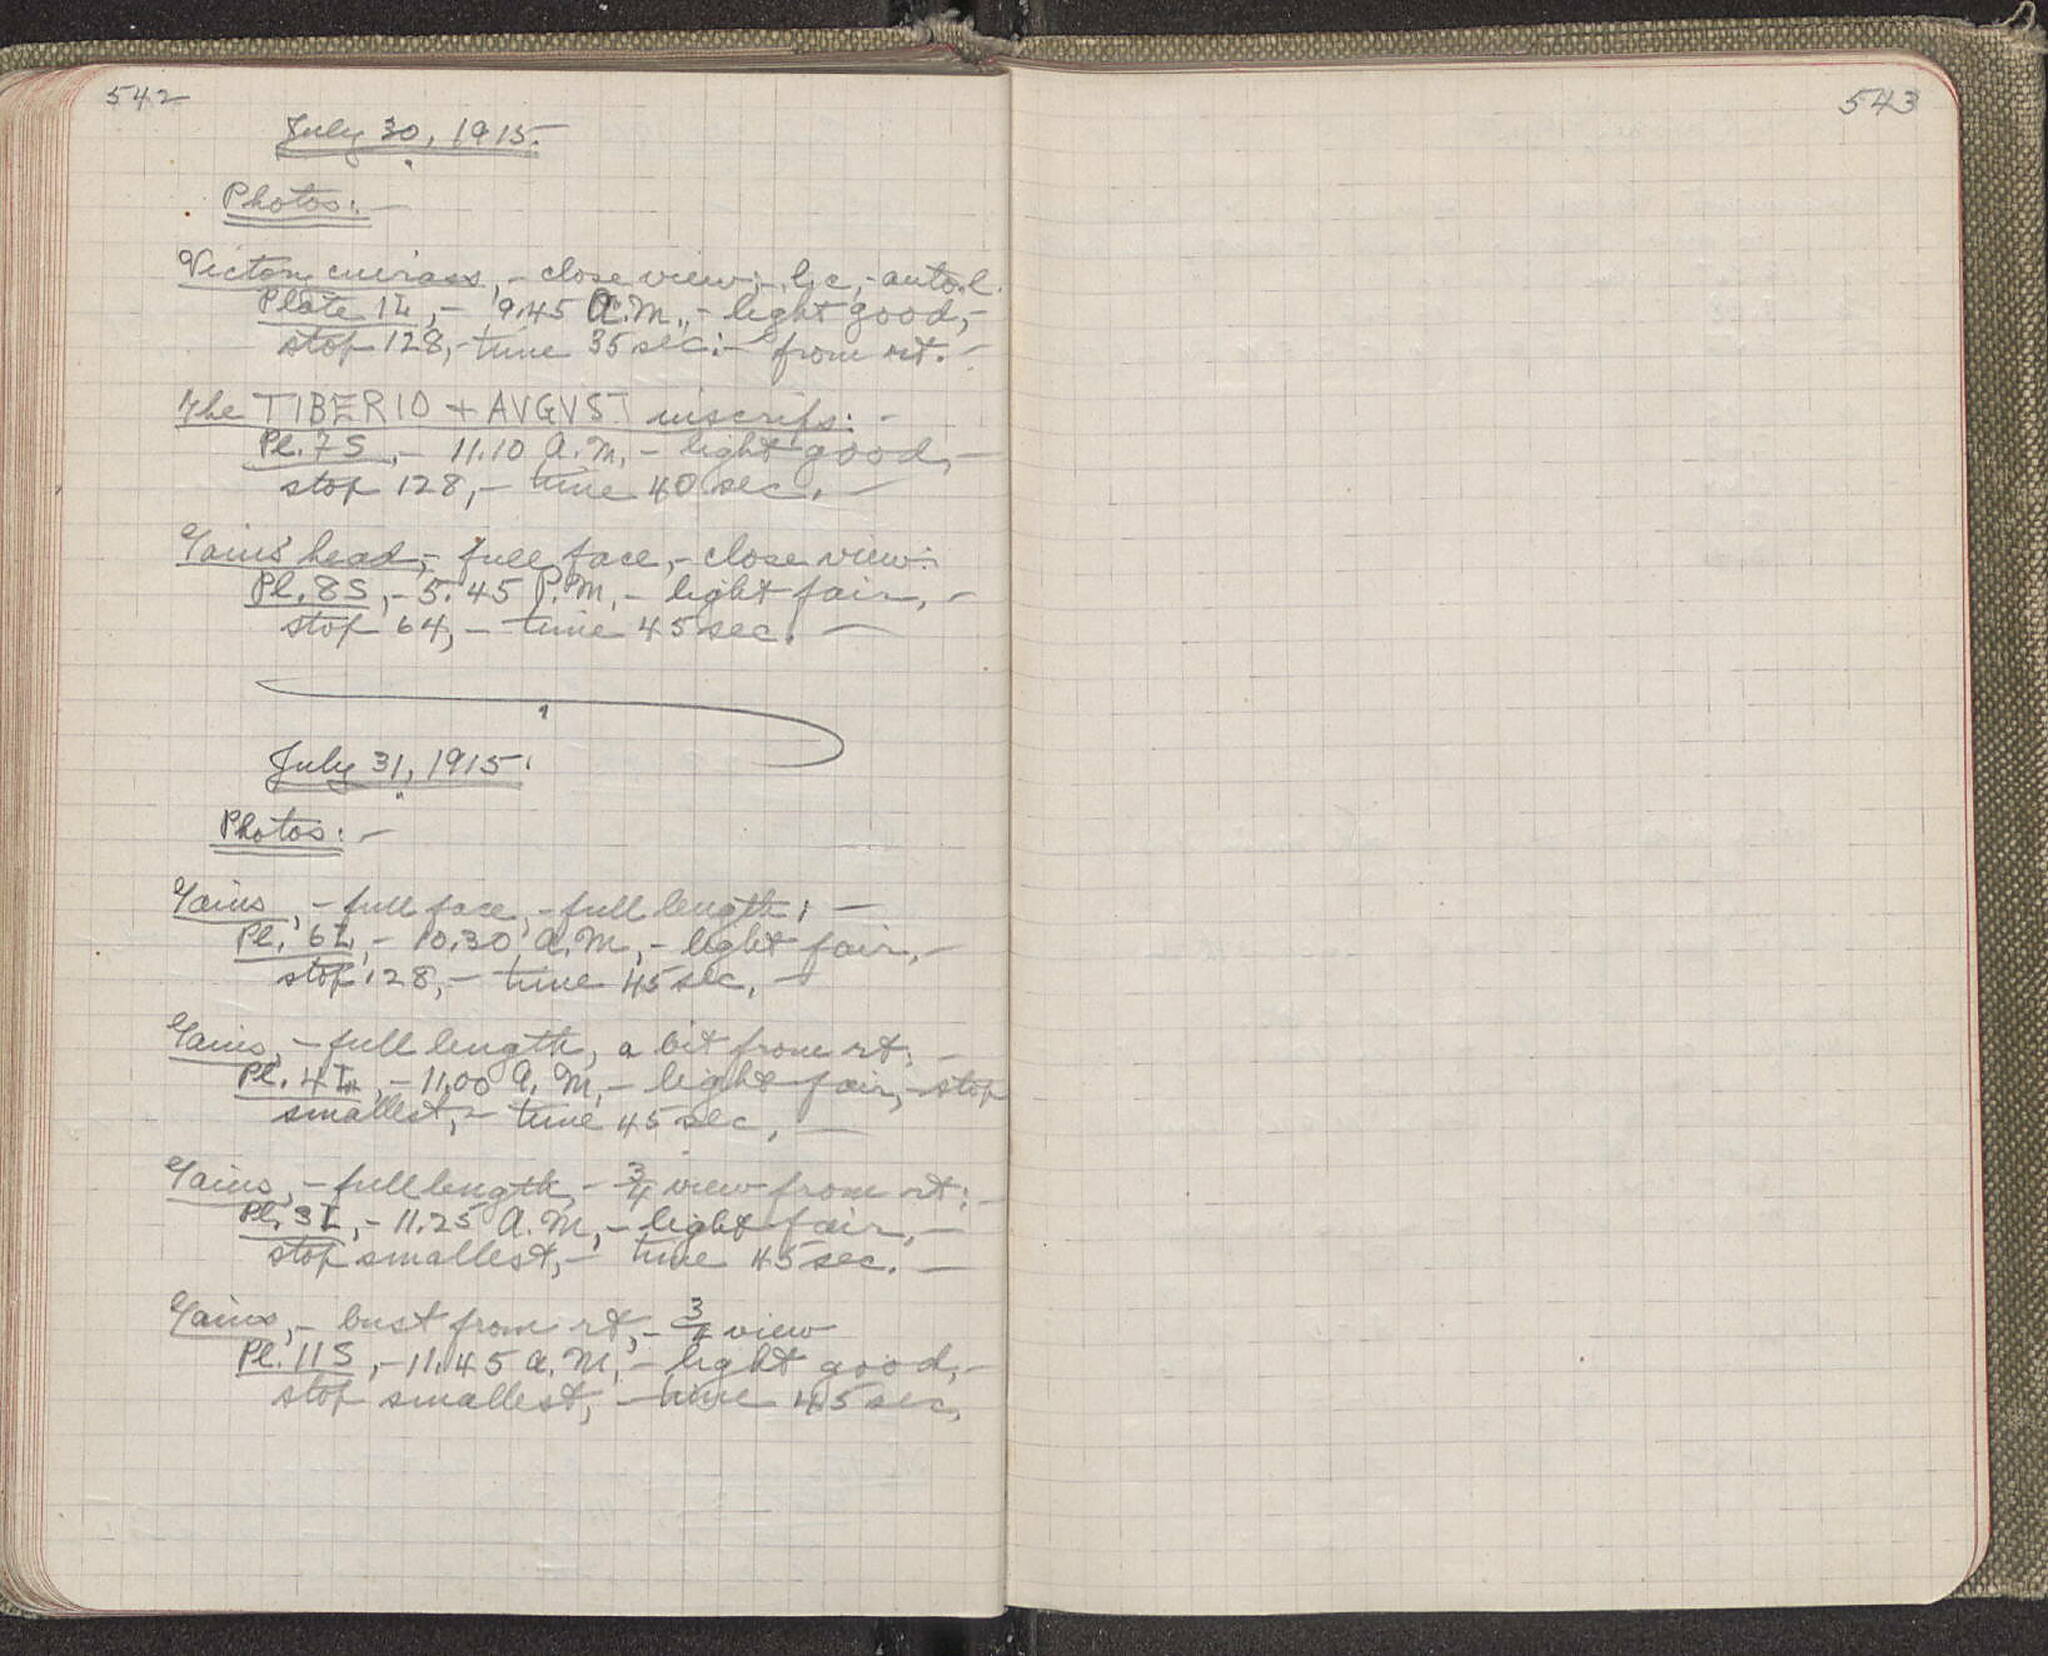 542
July 30, 1915.
Photos:—
Victory cuirass,— close view;— l.c,— auto. l.
Plate 1L,— 9.45 A.M.,— light good,—
stop 128,— time 35 sec:— from rt.—
The TIBERIO + AVGVST inscrips:—
Pl. 7S,— 11.10 A.M,— light good,—
stop 128,— time 40 sec.—
Gaius' head,— full face,— close view:
Pl. 8S,— 5.45 P.M,— light fair,—
stop 64,— time 45 sec.—
July 31, 1915.
Photos:—
Gaius,— full face,— full length;—
Pl. 6L,— 10.30 A.M,— light fair,—
stop 128,— time 45 sec,—
Gaius,— full length, a bit from rt:—
Pl. 4L,— 11.00 A.M,— light fair,— stop
smallest,— time 45 sec,—
Gaius,— full length,— 3/4 view from rt:—
Pl. 3L,— 11.25 A.M,— light fair,—
stop smallest,— time 45 sec.—
Gaius,— bust from rt,— 3/4 view
Pl. 11S,— 11.45 A.M,— light good,—
stop smallest,— time 45 sec,
543